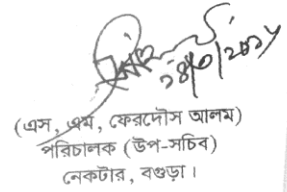 (এস, এম, ফেরদৌস আলম)
পরিচালক (উপ-সচিব)
নেকটার, বগুড়া।